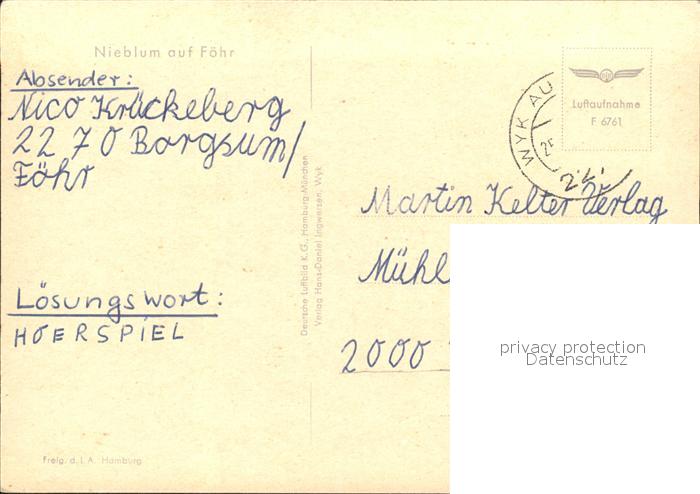 Nieblum auf Föhr
Absender:
Nico Krückeberg
2270 Borgsum/
Föhr
Lösungswort:
HOERSPIEL
Freig. d. L.A. Hamburg
Deutsche Luftbild K.G., Hamburg-München
Verlag Hans-Daniel Ingwersen, Wyk
WYK AU
Luftaufnahme
F 6761
Martin Kelter Verlag
Mühl
2000
privacy protection
Datenschutz